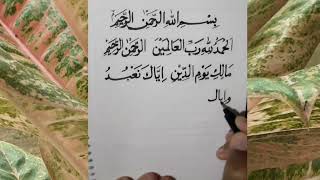 بِسْمِ اللهِ الرَّحْمٰنِ الرَّحِيْمِ
اَلْحَمْدُ لِلّٰهِ رَبِّ الْعَالَمِيْنَ الرَّحْمٰنِ الرَّحِيْمِ
مَالِكِ يَوْمِ الدِّيْنِ اِيَّاكَ نَعْبُدُ
وإيال